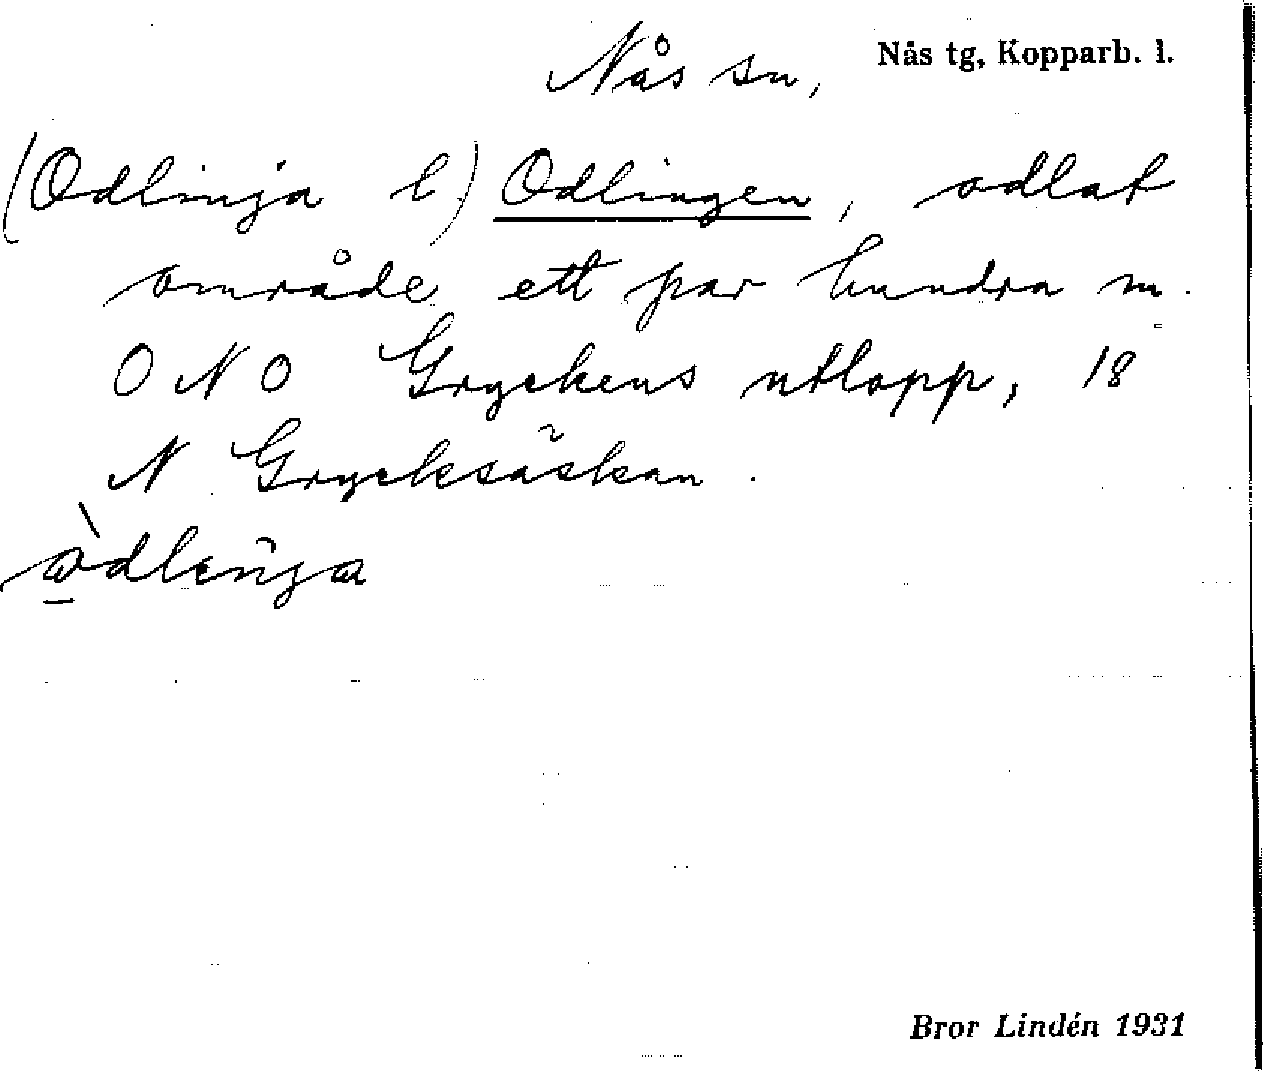 Nås sn, Nås tg, Kopparb. l.
(Odlinja l) Odlingen, odlat
område ett par hundra m.
O N O Gryckens utlopp, 18
N Grycksåskan.
òdlinja
Bror Lindén 1931